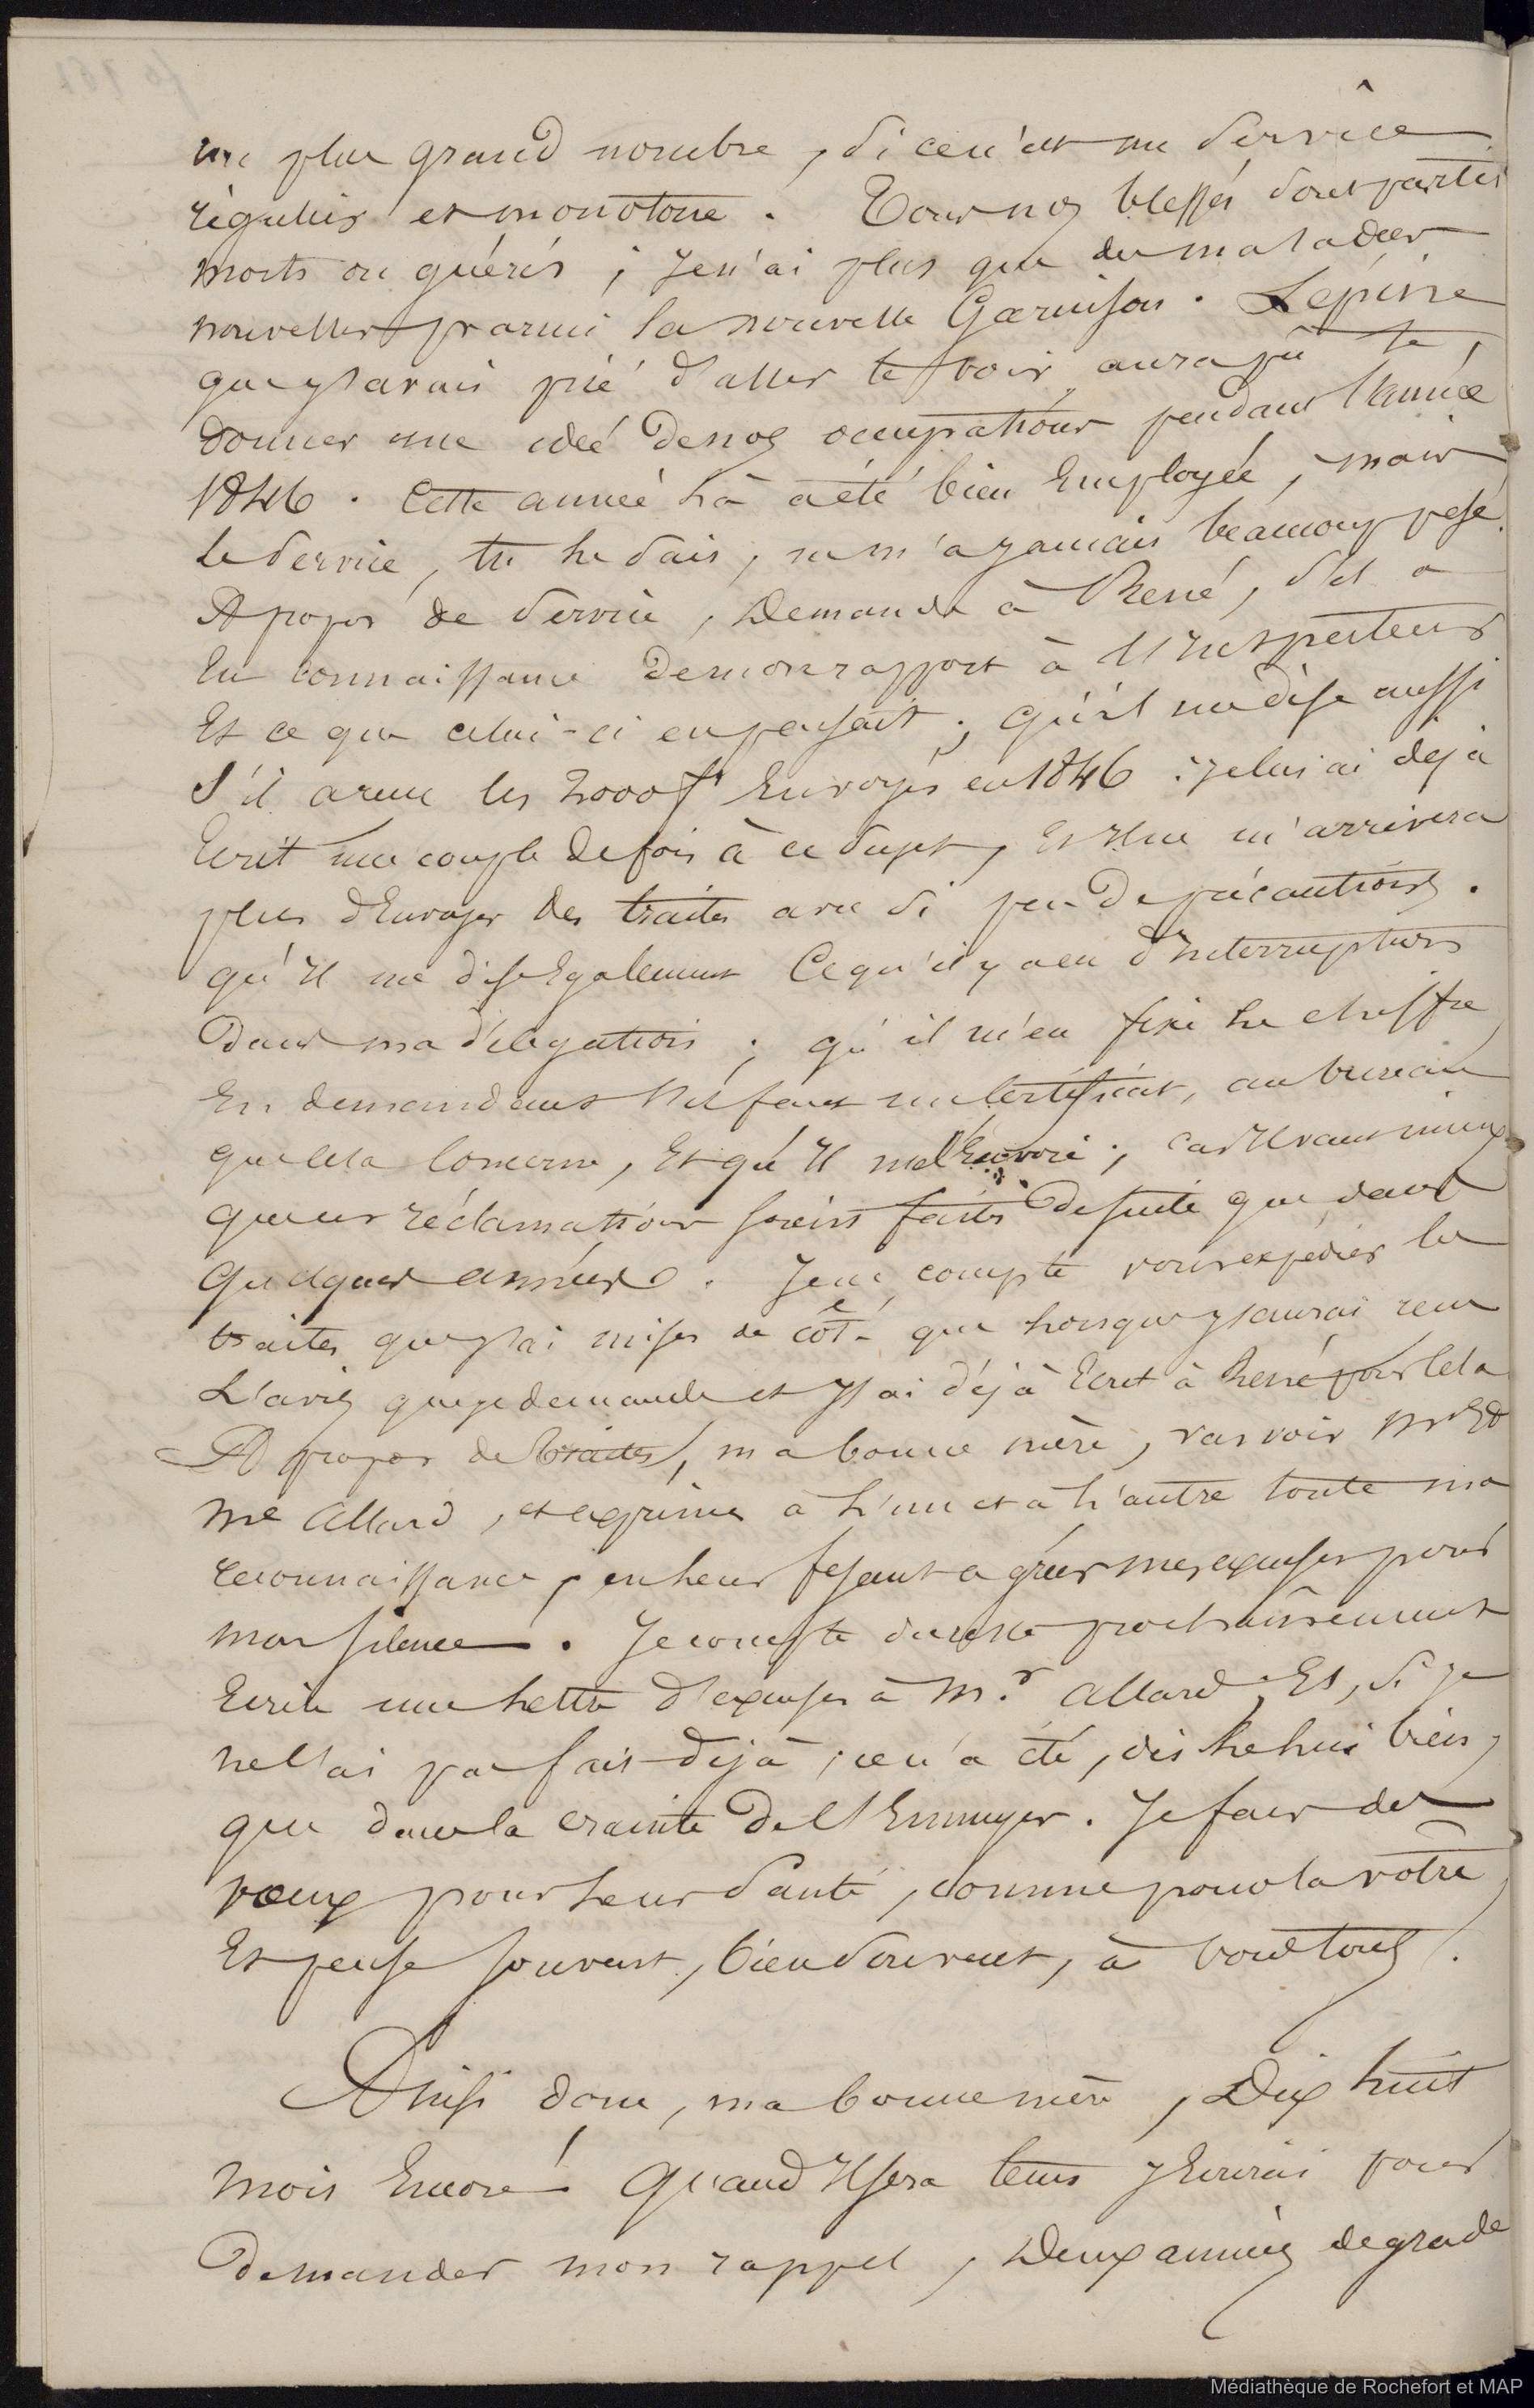 un plus grand nombre, si ce n'est un service
régulier et monotone. Tous nos blessés sont partis
morts ou guéris ; je n'ai plus que des maladies
nouvelles parmi la nouvelle Garnison. Lépine
que j'avais prié d'aller te voir aura pû te
donner une idée de nos occupations pendant l'année
1846. Cette année là a été bien Employée, mais
le service, tu le sais, ne m'a jamais beaucoup pesé.
A propos de service, demande à René, s'il a
Eu connaissance de mon rapport à l'Inspecteur
Et ce que celui-ci en pensait ; qu'il me dise aussi
S'il a reçu les 2000f Envoyés en 1846 : je lui ai dejà
Ecrit une couple de fois à ce sujet, Et Il ne m'arrivera
plus d'Envoyer des traites avec si peu de précautions.
qu'Il me dise Egalement Ce qu'il y a eu d'Interruptions
Dans ma délégation ; qu'il m'en fixe le chiffre
En demandant un certificat, au bureau
que cela Concerne, Et qu'Il me l'Envoie ; car Il vaut mieux
que ces réclamations soient faites desuite que dans
quelques années. Je ne compte vous expédier les
traites que j'ai mises de côté que lorsque j'aurai reçu
L'avis que je demande et j'ai déjà Ecrit à René pour cela
A propos de traites, ma bonne mère, vas voir Mr Et
Me Allard, et exprime à l'un et à l'autre toute ma
reconnaissance, en leur fesant agréer mes excuses pour
mon silence. Je compte prochainement
Ecrire une lettre d'excuses à M.r Allard, Et, si je
ne l'ai pas fait déjà, ce n'a été, dis le lui bien,
que dans la crainte de l'Ennuyer. Je fais des
voeux pour leur santé, comme pour la votre
Et pense souvent, bien souvent, à vous tous.
Ainsi donc, ma bonne mère, Dix huit
mois Encore ! Quand Il sera tems j'Ecrirai pour
Demander mon rappel, Deux années de grade
Médiathèque de Rochefort et MAP